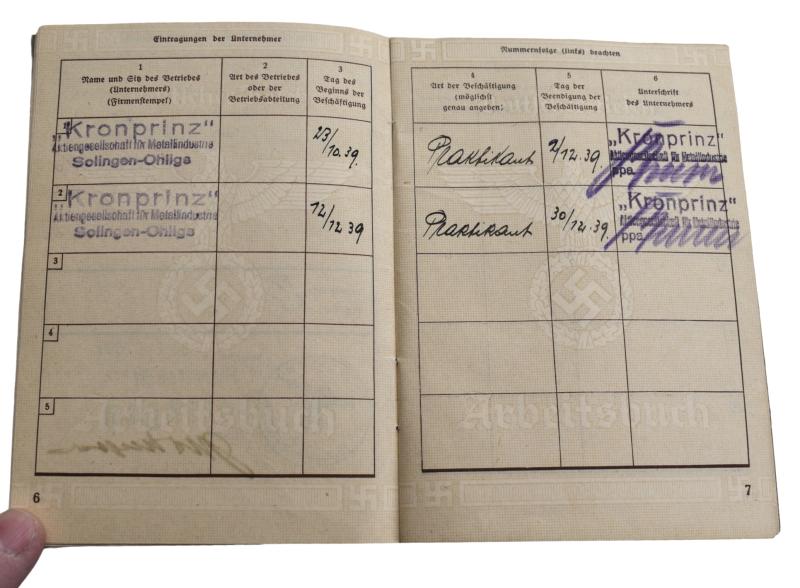 Eintragungen der Unternehmer
1
Name und Sitz des Betriebes
(Unternehmers)
(Firmenstempel)
2
Art des Betriebes
oder der
Betriebsabteilung
3
Tag des
Beginns der
Beschäftigung
1
„Kronprinz"
Aktiengesellschaft für Metallindustrie
Solingen-Ohligs
23/10.39.
2
„Kronprinz"
Aktiengesellschaft für Metallindustrie
Solingen-Ohligs
12/12 39
3
4
5
Arbeitsbuch
6
Nummernfolge (links) beachten
4
Art der Beschäftigung
(möglichst
genau angeben)
5
Tag der
Beendigung der
Beschäftigung
6
Unterschrift
des Unternehmers
Praktikant
2/12.39.
„Kronprinz"
Aktiengesellschaft für Metallindustrie
ppa.
Praktikant
30/12.39.
„Kronprinz"
Aktiengesellschaft für Metallindustrie
ppa.
Arbeitsbuch
7